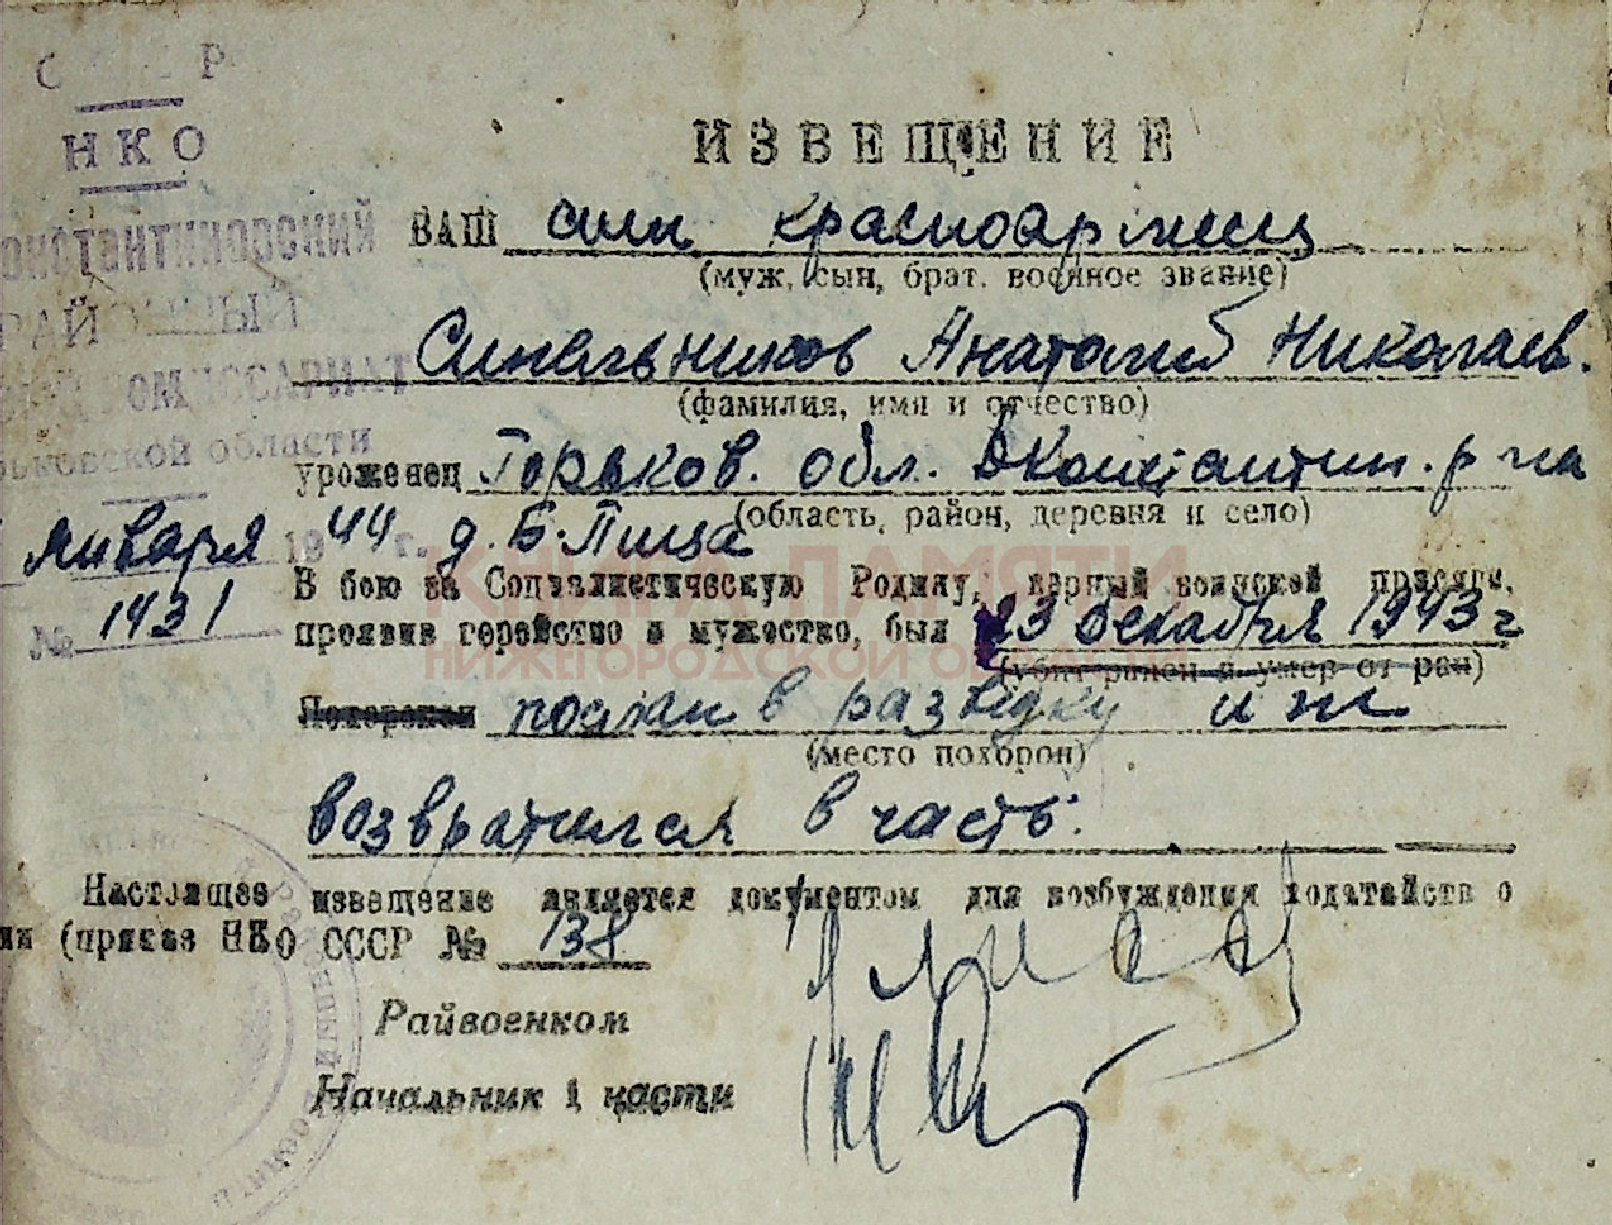 НКО
КОНСТАНТИНОВСКИЙ
РАЙОННЫЙ
КОМИССАРИАТ
Горьковской области
января 1944 г.
№ 1431
ИЗВЕЩЕНИЕ
ВАШ сын красноармеец
(муж, сын, брат. военное звание)
Синельников Анатолий Николаев.
(фамилия, имя и отчество)
уроженец Горьков. обл. Дконстантин. р-на
(область, район, деревня и село)
д. Б. Пица
В бою за Социалистическую Родину, верный воинской присяге,
проявив геройство и мужество, был 23 декабря 1943 г
(убит ранен и умер от ран)
Похоронен послан в разведку и не
(место похорон)
возвратился в часть.
Настоящее извещение является документом для возбуждения ходатайств о
ии (приказ НКО СССР № 138
Райвоенком
Начальник 1 части
КНИГА ПАМЯТИ
НИЖЕГОРОДСКОЙ ОБЛАСТИ